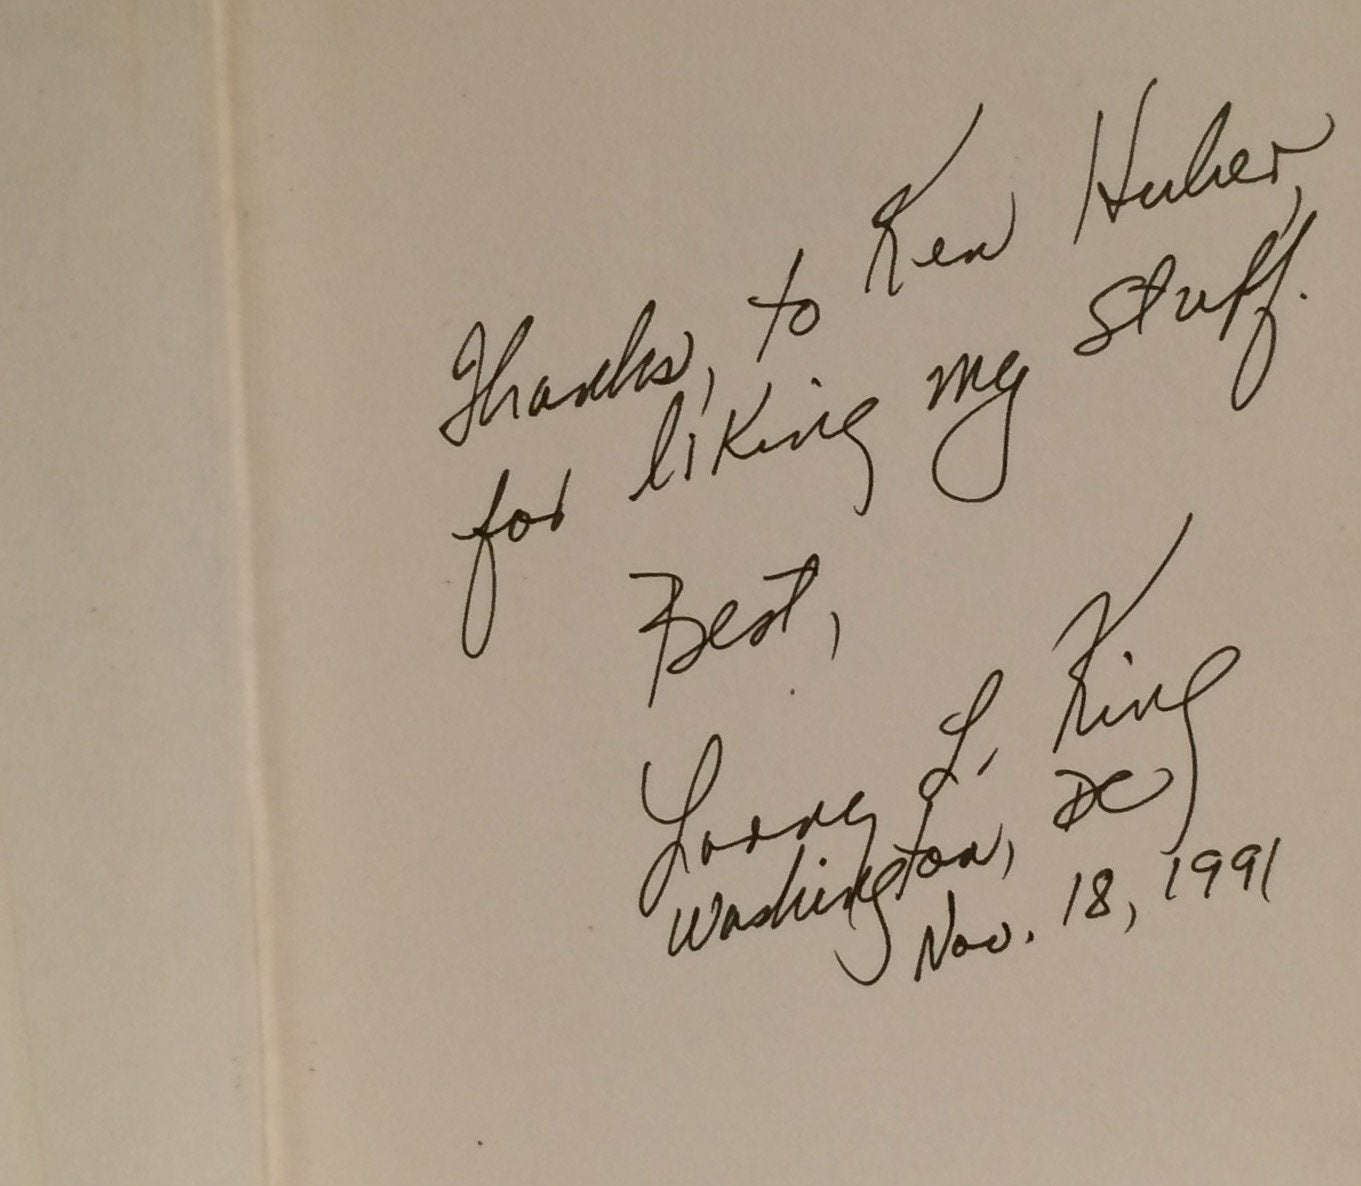 Thanks, to Ken Huber,
for liking my stuff.
Best,
Larry L. King
Washington, DC
Nov. 18, 1991